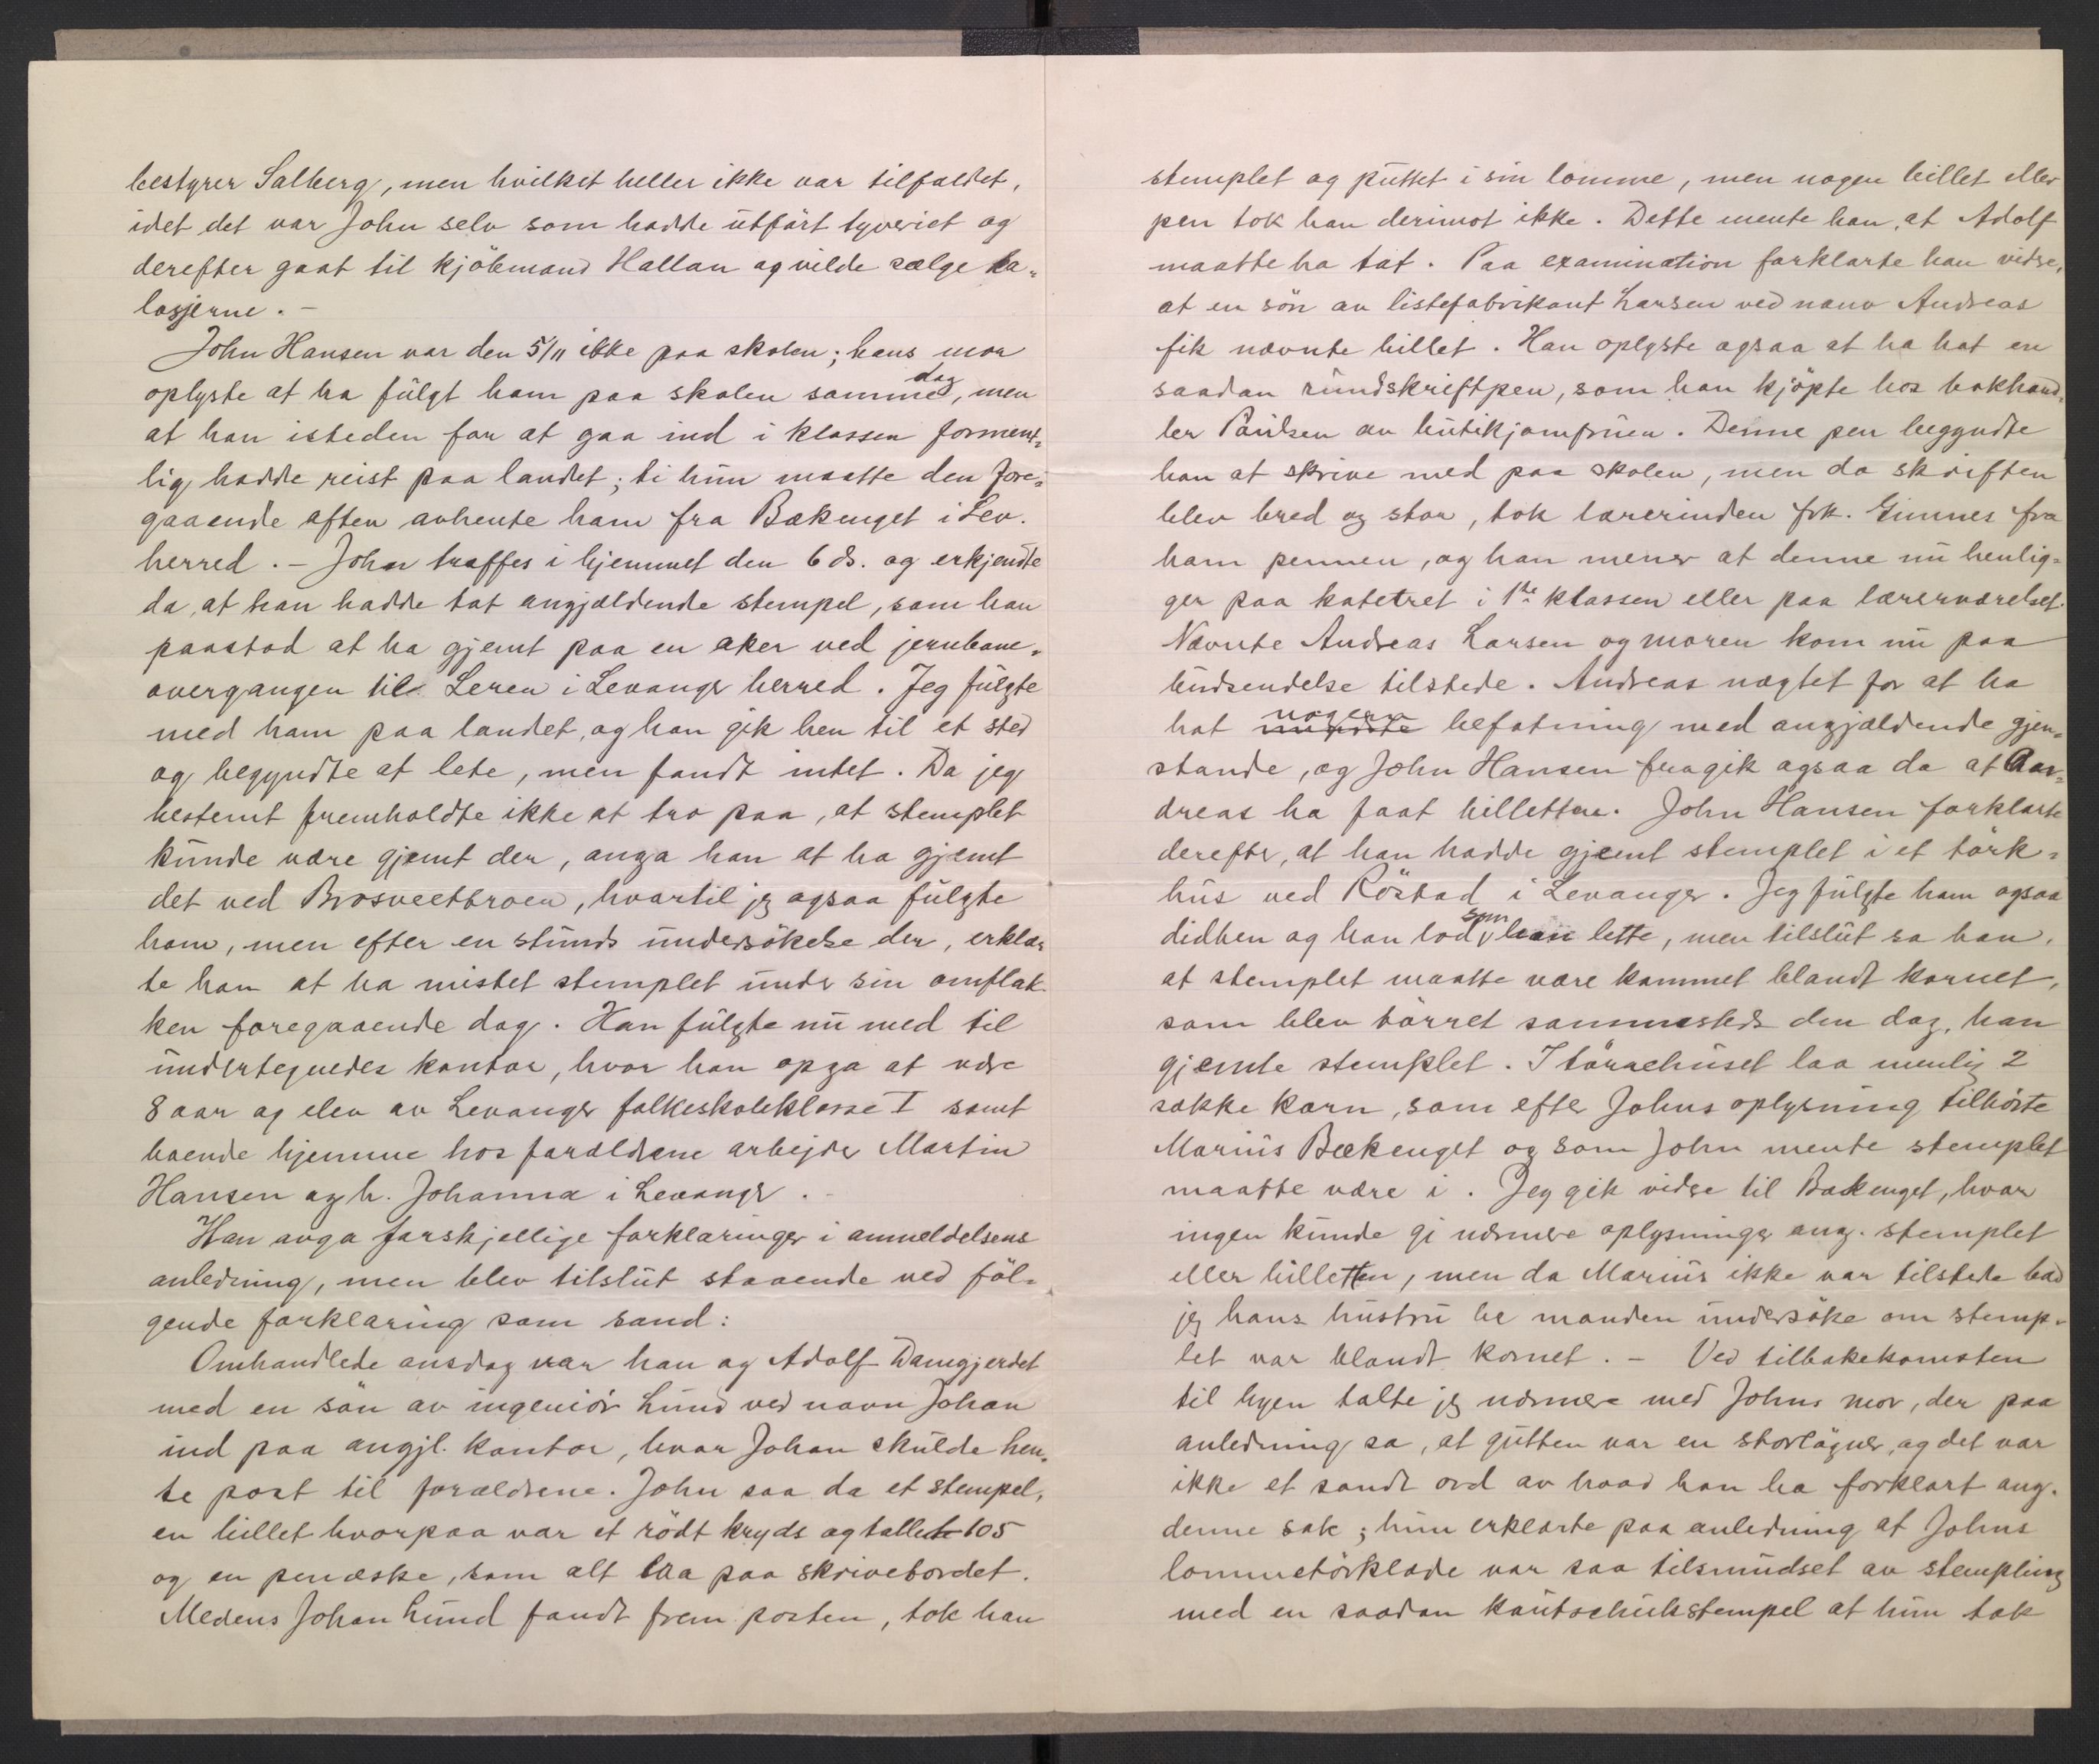 bestyrer Salberg, men hvilket heller ikke var tilfældet,
idet det var John selv som hadde utført tyveriet og
derefter gaat til kjöbmand Hallan og vilde sælge ka-
losjerne. -
John Hansen var den 5/11 ikke paa skolen; hans mor
oplyste at ha fulgt ham paa skolen samme dag, men
at han isteden for at gaa ind i klassen forment-
lig hadde reist paa landet; ti hun maatte den fore-
gaaende aften avhente ham fra Bækenget i Lev.
herred. - John traffes i hjemmet den 6 ds. og erkjendte
da, at han hadde tat angjældende stempel, som han
paastod at ha gjemt paa en aker ved jernbane-
overgangen til Leren i Levanger herred. Jeg fulgte
med ham paa landet, og han gik hen til et sted
og begyndte at lete, men fandt intet. Da jeg
bestemt fremholdte ikke at tro paa, at stemplet
kunde være gjemt der, anga han at ha gjemt
det ved Brosveetbroen, hvortil jeg ogsaa fulgte
ham, men efter en stunds undersökelse der, erklær-
te han at ha mistet stemplet under sin omflak-
ken foregaaende dag. Han fulgte nu med til
undertegnedes kontor, hvor han opga at være
8 aar og elev av Levanger folkeskoleklasse I samt
boende hjemme hos forældrene arbejder Martin
Hansen og h. Johanna i Levanger. -
Han avga forskjellige forklaringer i anmeldelsens
anledning, men blev tilslut staaende ved föl-
gende forklaring som sand:
Omhandlede onsdag var han og Adolf Damgjerdet
med en sön av ingeniör Lund ved navn Johan
ind paa angjl. kontor, hvor Johan skulde hen-
te post til forældrene. John saa da et stempel,
en billet hvorpaa var et rödt kryds og tallet 105
og en penæske, som alt laa paa skrivebordet.
Medens Johan Lund fandt frem posten, tok han
stemplet og puttet i sin lomme, men nogen billet eller
pen tok han derimot ikke. Dette mente han, at Adolf
maatte ha tat. Paa examination forklarte han videre,
at en sön av listefabrikant Larsen ved navn Andreas
fik nævnte billet. Han oplyste ogsaa at ha hat en
saadan rundskriftpen, som han kjöpte hos bokhand-
ler Paulsen av butikjomfruen. Denne pen begyndte
han at skrive med paa skolen, men da skriften
blev bred og stor, tok lærerinden frk. Gimnes fra
ham pennen, og han mener at denne nu henlig-
ger paa katetret i 1ste klassen eller paa lærerværelset.
Nævnte Andreas Larsen og moren kom nu paa
budsendelse tilstede. Andreas nægtet for at ha
hat nogen befatning med angjældende gjen-
stande, og John Hansen fragik ogsaa da at An-
dreas ha faat billetten. John Hansen forklarte
derefter, at han hadde gjemt stemplet i et törk-
hus ved Röstad i Levanger. Jeg fulgte ham ogsaa
didhen og han lod som han lette, men tilslut sa han,
at stemplet maatte være kommet blandt kornet,
som blev törret sammesteds den dag, han
gjemte stemplet. I törrehuset laa nemlig 2
sække korn, som efter Johns oplysning tilhörte
Marius Bækenget og som John mente stemplet
maatte være i. Jeg gik videre til Bækenget, hvor
ingen kunde gi nærmere oplysninger ang. stemplet
eller billetten, men da Marius ikke var tilstede bad
jeg hans hustru be manden undersöke om stemp-
let var blandt kornet. - Ved tilbakekomsten
til byen talte jeg nærmere med Johns mor, der paa
anledning sa, at gutten var en storlögner, og det var
ikke et sandt ord av hvad han ha forklart ang.
denne sak; hun erklærte paa anledning at Johns
lommetörklæde var saa tilsmudset av stempling
med en saadan kautschukstempel at hun tok